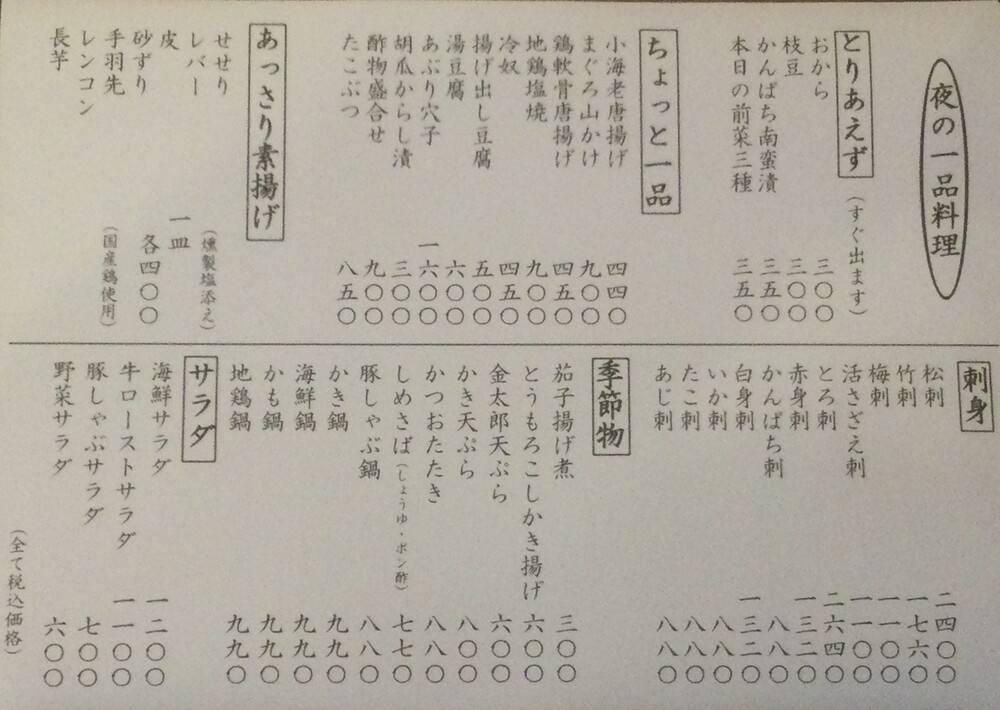 夜の一品料理
とりあえず (すぐ出ます)
おから 三〇〇
枝豆 三〇〇
かんぱち南蛮漬 三五〇
本日の前菜三種 三五〇
ちょっと一品
小海老唐揚げ 四四〇
まぐろ山かけ 九〇〇
鶏軟骨唐揚げ 四五〇
地鶏塩焼 九〇〇
冷奴 四五〇
揚げ出し豆腐 五〇〇
湯豆腐 六〇〇
あぶり穴子 一六〇〇
胡瓜からし漬 三〇〇
酢物盛合せ 九〇〇
たこぶつ 八五〇
あっさり素揚げ
せせり (燻製塩添え)
レバー
皮 一皿
砂ずり 各四〇〇
手羽先 (国産鶏使用)
レンコン
長芋
刺身
松刺 二四〇〇
竹刺 一七六〇
梅刺 一一〇〇
活さざえ刺 一一〇〇
とろ刺 二六四〇
赤身刺 一三二〇
かんぱち刺 八八〇
白身刺 一三二〇
いか刺 八八〇
たこ刺 八八〇
あじ刺 八八〇
季節物
茄子揚げ煮 三〇〇
とうもろこしかき揚げ 六〇〇
金太郎天ぷら 六〇〇
かき天ぷら 八〇〇
かつおたたき 八八〇
しめさば (しょうゆ・ポン酢) 七七〇
豚しゃぶ鍋 八八〇
かき鍋 九九〇
海鮮鍋 九九〇
かも鍋 九九〇
地鶏鍋 九九〇
サラダ
海鮮サラダ 一二〇〇
牛ローストサラダ 一一〇〇
豚しゃぶサラダ 七〇〇
野菜サラダ 六〇〇
(全て税込価格)